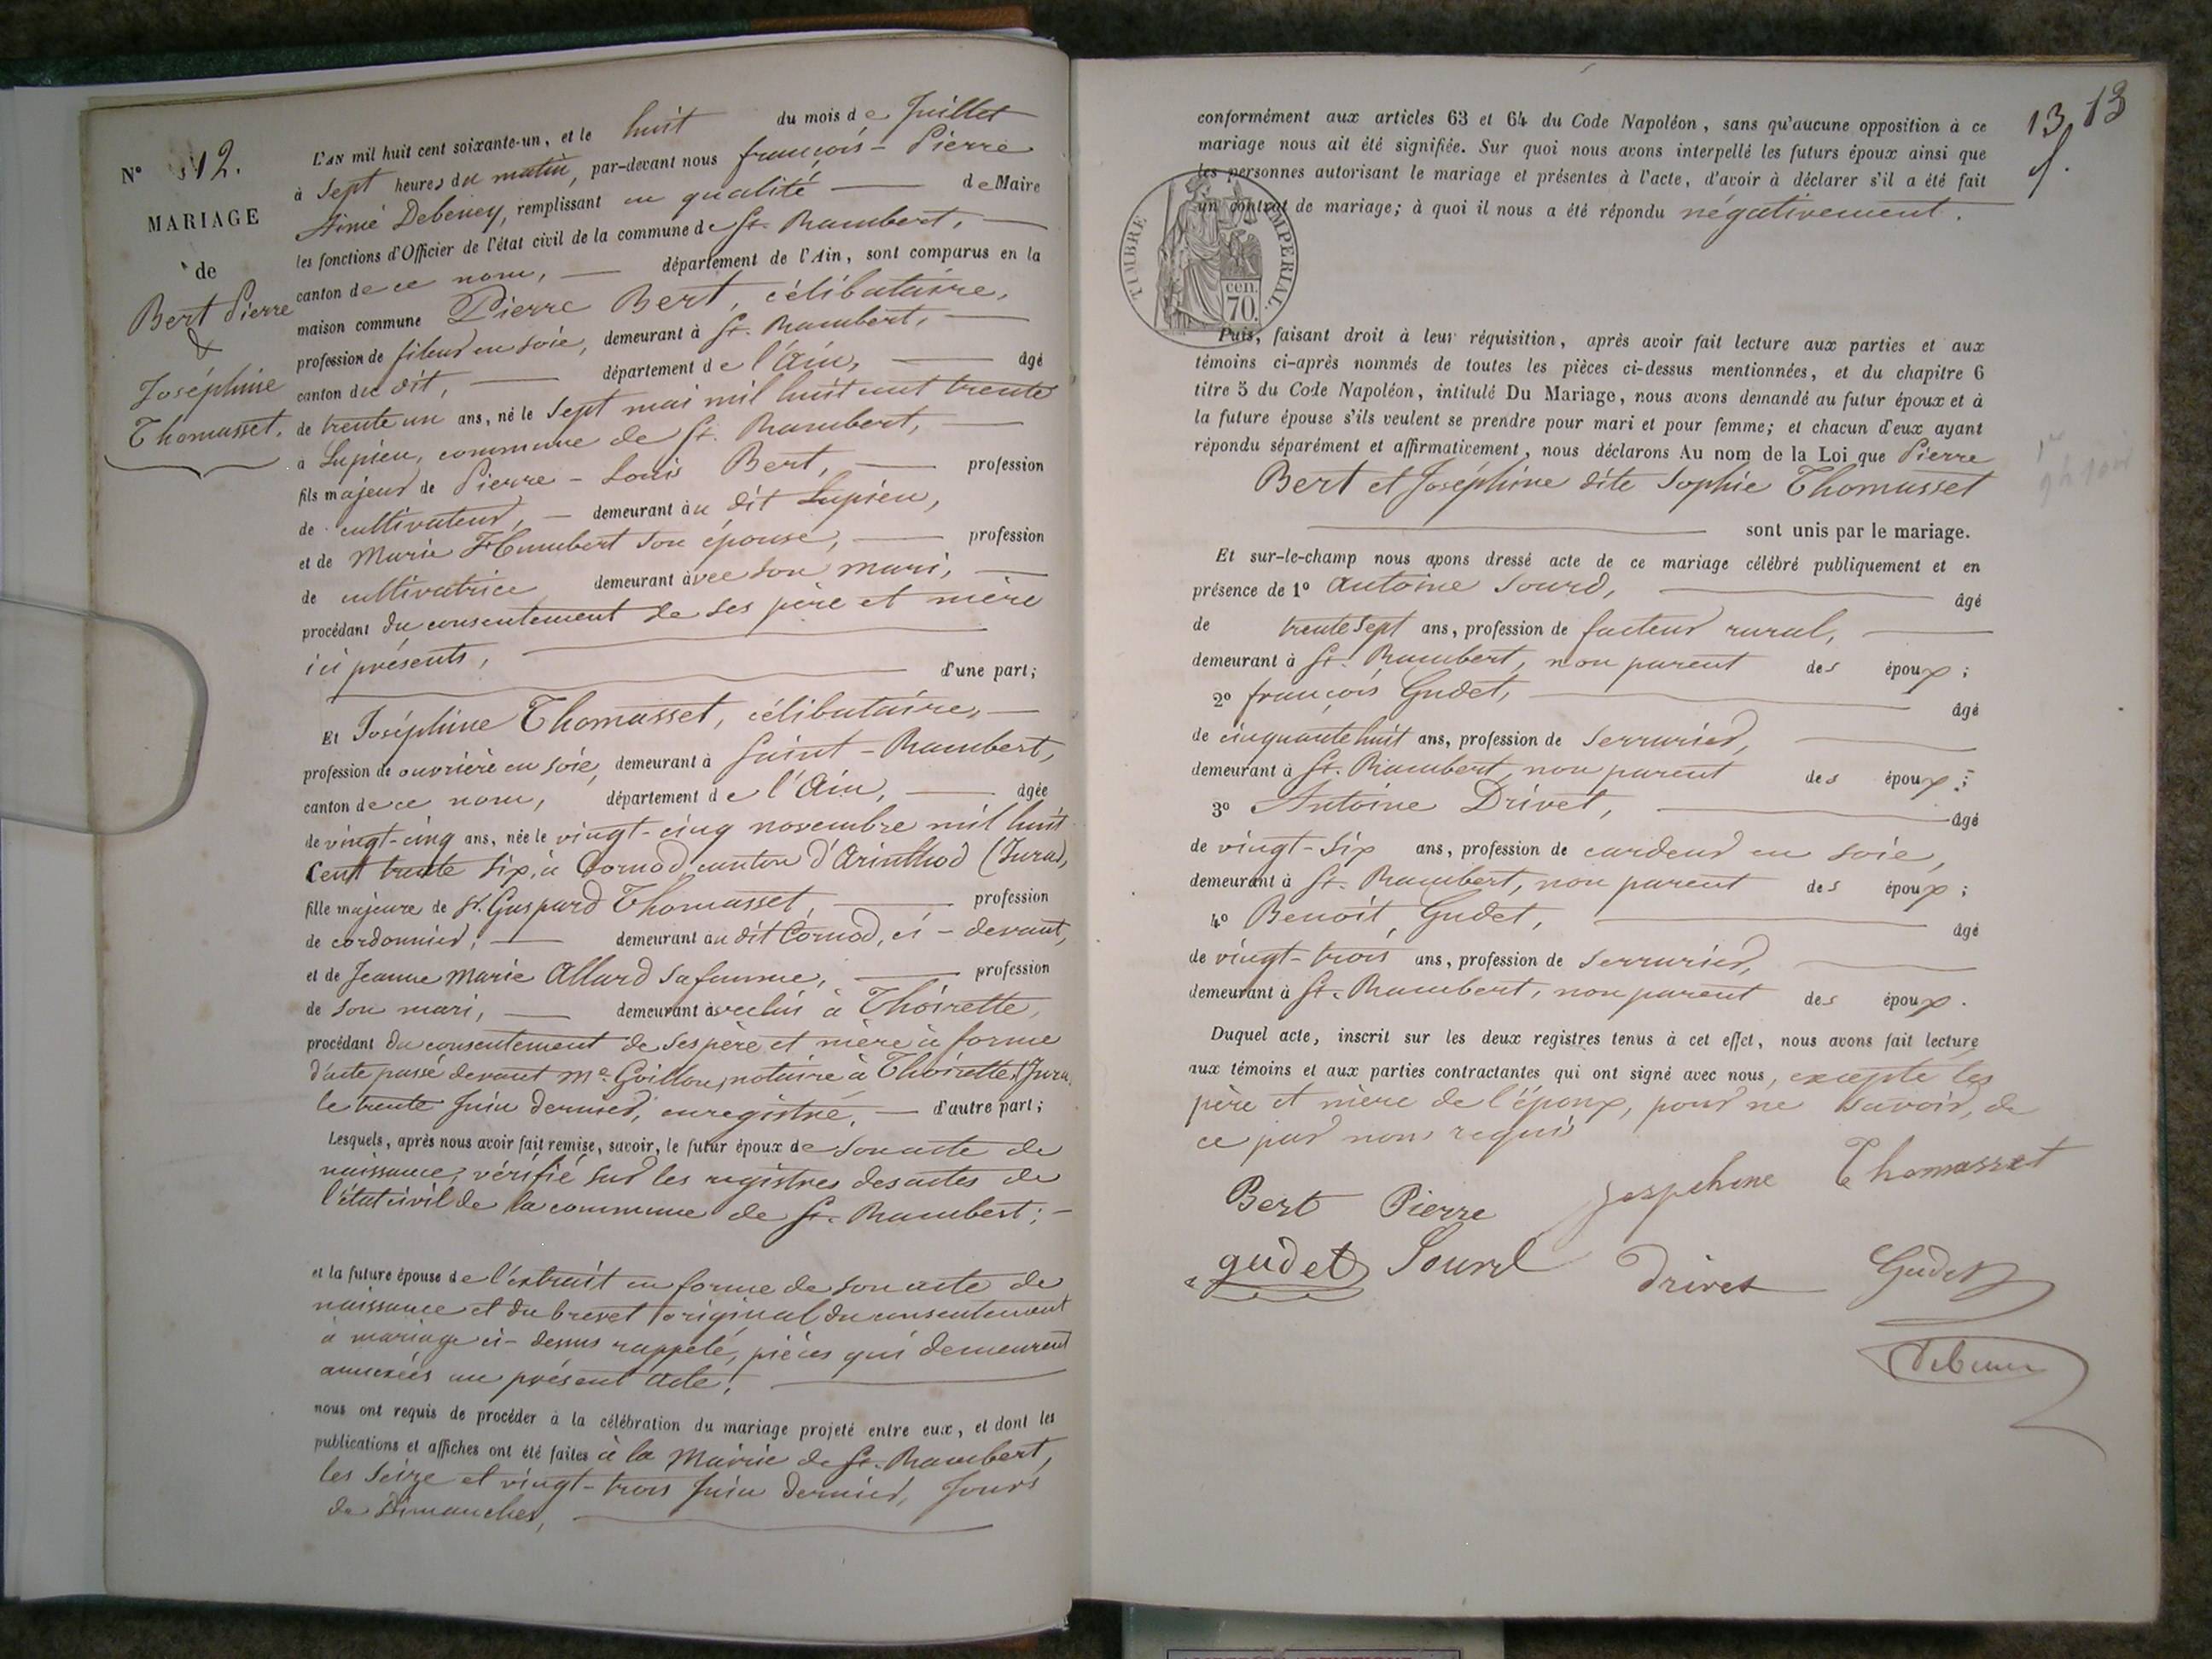 N° 12.
MARIAGE
de
Bert Pierre
&
Joséphine
Thomasset.
L'AN mil huit cent soixante-un, et le huit du mois de Juillet
à sept heures du matin, par-devant nous françois-Pierre
Aimé Debeney, remplissant en qualité de Maire
les fonctions d'Officier de l'état civil de la commune de St. Rambert,
canton de ce nom, département de l'Ain, sont comparus en la
maison commune Pierre Bert, célibataire,
profession de fileur en soie, demeurant à St. Rambert,
canton du dit, département de l'Ain, âgé
de trente un ans, né le sept mai mil huit cent trente
à Lupieu, commune de St. Rambert,
fils majeur de Pierre-Louis Bert, profession
de cultivateur, demeurant au dit Lupieu,
et de Marie Humbert son épouse, profession
de cultivatrice demeurant avec son mari,
procédant du consentement de ses père et mère
ici présents,
d'une part;
Et Joséphine Thomasset, célibataire,
profession de ouvrière en soie, demeurant à Saint-Rambert,
canton de ce nom, département de l'Ain, âgée
de vingt-cinq ans, née le vingt-cinq novembre mil huit
cent trente six, à Cornod, canton d'Arinthod (Jura),
fille majeure de Sr. Gaspard Thomasset, profession
de cordonnier, demeurant au dit Cornod, ci-devant,
et de Jeanne Marie Allard sa femme, profession
de son mari, demeurant avec lui à Thoirette,
procédant du consentement de ses père et mère à forme
d'acte passé devant Me. Goillon, notaire à Thoirette (Jura,
le trente Juin dernier, enregistré. d'autre part;
Lesquels, après nous avoir fait remise, savoir, le futur époux de son acte de
naissance, vérifié sur les registres des actes de
l'état civil de la commune de St. Rambert;
et la future épouse de l'extrait en forme de son acte de
naissance et du brevet original du consentement
à mariage ci-dessus rappelé, pièces qui demeurent
annexées au présent acte.
nous ont requis de procéder à la célébration du mariage projeté entre eux, et dont les
publications et affiches ont été faites à la Mairie de St. Rambert,
les seize et vingt-trois Juin dernier, jours
de Dimanches,
13 13
conformément aux articles 63 et 64 du Code Napoléon, sans qu'aucune opposition à ce
mariage nous ait été signifiée. Sur quoi nous avons interpellé les futurs époux ainsi que
les personnes autorisant le mariage et présentes à l'acte, d'avoir à déclarer s'il a été fait
un contrat de mariage; à quoi il nous a été répondu négativement.
TIMBRE IMPERIAL.
cen.
70.
Puis, faisant droit à leur réquisition, après avoir fait lecture aux parties et aux
témoins ci-après nommés de toutes les pièces ci-dessus mentionnées, et du chapitre 6
titre 5 du Code Napoléon, intitulé Du Mariage, nous avons demandé au futur époux et à
la future épouse s'ils veulent se prendre pour mari et pour femme; et chacun d'eux ayant
répondu séparément et affirmativement, nous déclarons Au nom de la Loi que Pierre
Bert et Joséphine dite Sophie Thomasset
sont unis par le mariage.
Et sur-le-champ nous avons dressé acte de ce mariage célébré publiquement et en
présence de 1° Antoine Sourd, âgé
de trente sept ans, profession de facteur rural,
demeurant à St. Rambert, non parent des époux;
2° françois Gudet, âgé
de cinquante huit ans, profession de serrurier,
demeurant à St. Rambert, non parent des époux;
3° Antoine Drivet, âgé
de vingt-six ans, profession de cardeur en soie,
demeurant à St. Rambert, non parent des époux;
4° Benoit Gudet, âgé
de vingt-trois ans, profession de serrurier,
demeurant à St. Rambert, non parent des époux.
Duquel acte, inscrit sur les deux registres tenus à cet effet, nous avons fait lecture
aux témoins et aux parties contractantes qui ont signé avec nous, excepté les
père et mère de l'époux, pour ne savoir, de
ce par nous requis
Bert Pierre Jospehine Thomasset
gudet Sourd Drivet Gudet
Debeney